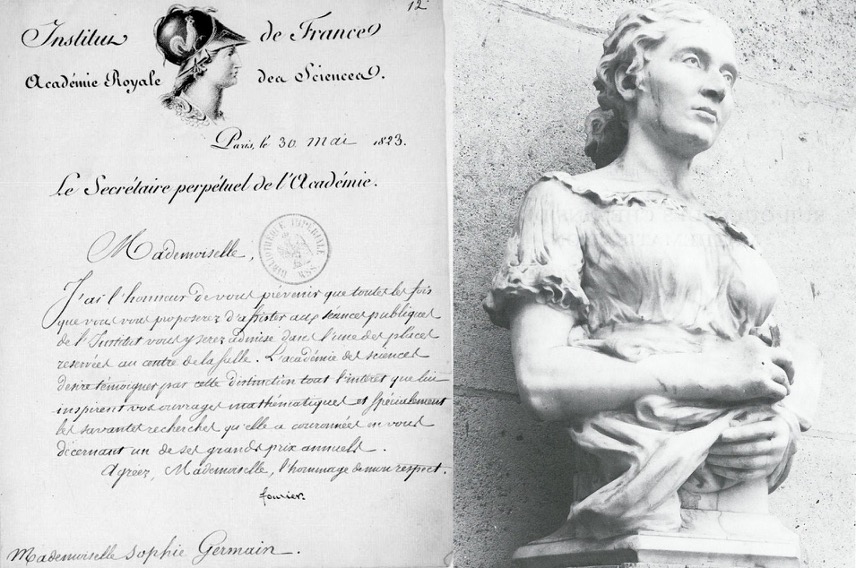 12
Institut de France
Académie Royale des Sciences.
Paris, le 30 mai 1823.
Le Secrétaire perpétuel de l'Académie.
BIBLIOTHEQUE IMPERIALE MSS
Mademoiselle,
J'ai l'honneur de vous prévenir que toutes les fois
que vous vous proposerez d'assister aux séances publiques
de l'Institut vous y serez admise dans l'une des places
reservées au centre de la salle. L'académie des sciences
desire témoigner par cette distinction tout l'interet que lui
inspirent vos ouvrages mathématiques et spécialement
les savantes recherches qu'elle a couronnées en vous
décernant un de ses grands prix annuels.
Agréez, Mademoiselle, l'hommage de mon respect.
fourier.
Mademoiselle Sophie Germain.